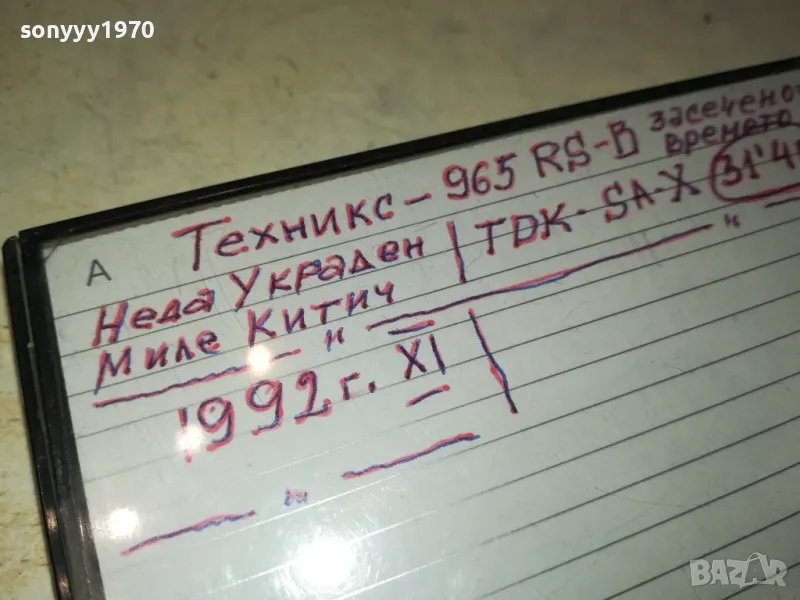 sonyyy1970
A Техникс - 965 RS-B
засечено
времето
31'4
Неда Украден | TDK - SA-X
Миле Китич
— " —
1992 г. XI
— " —
BAZAR